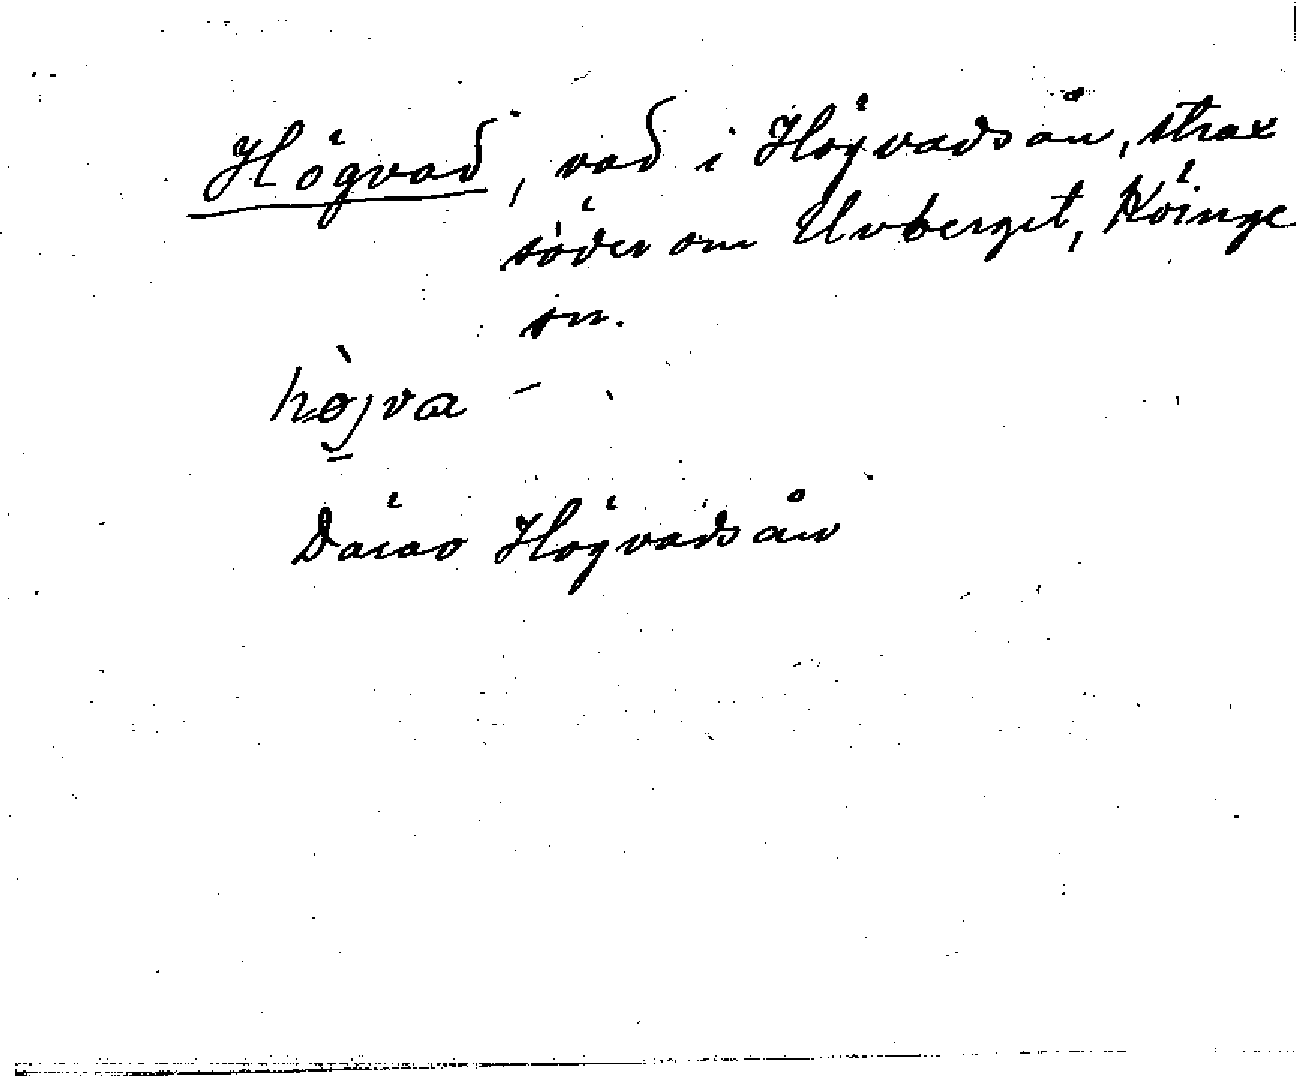 Högvad, vad i Högvadsån, strax
söder om Uvberget, Köinge
sn.
højva –
Därav Högvadsån